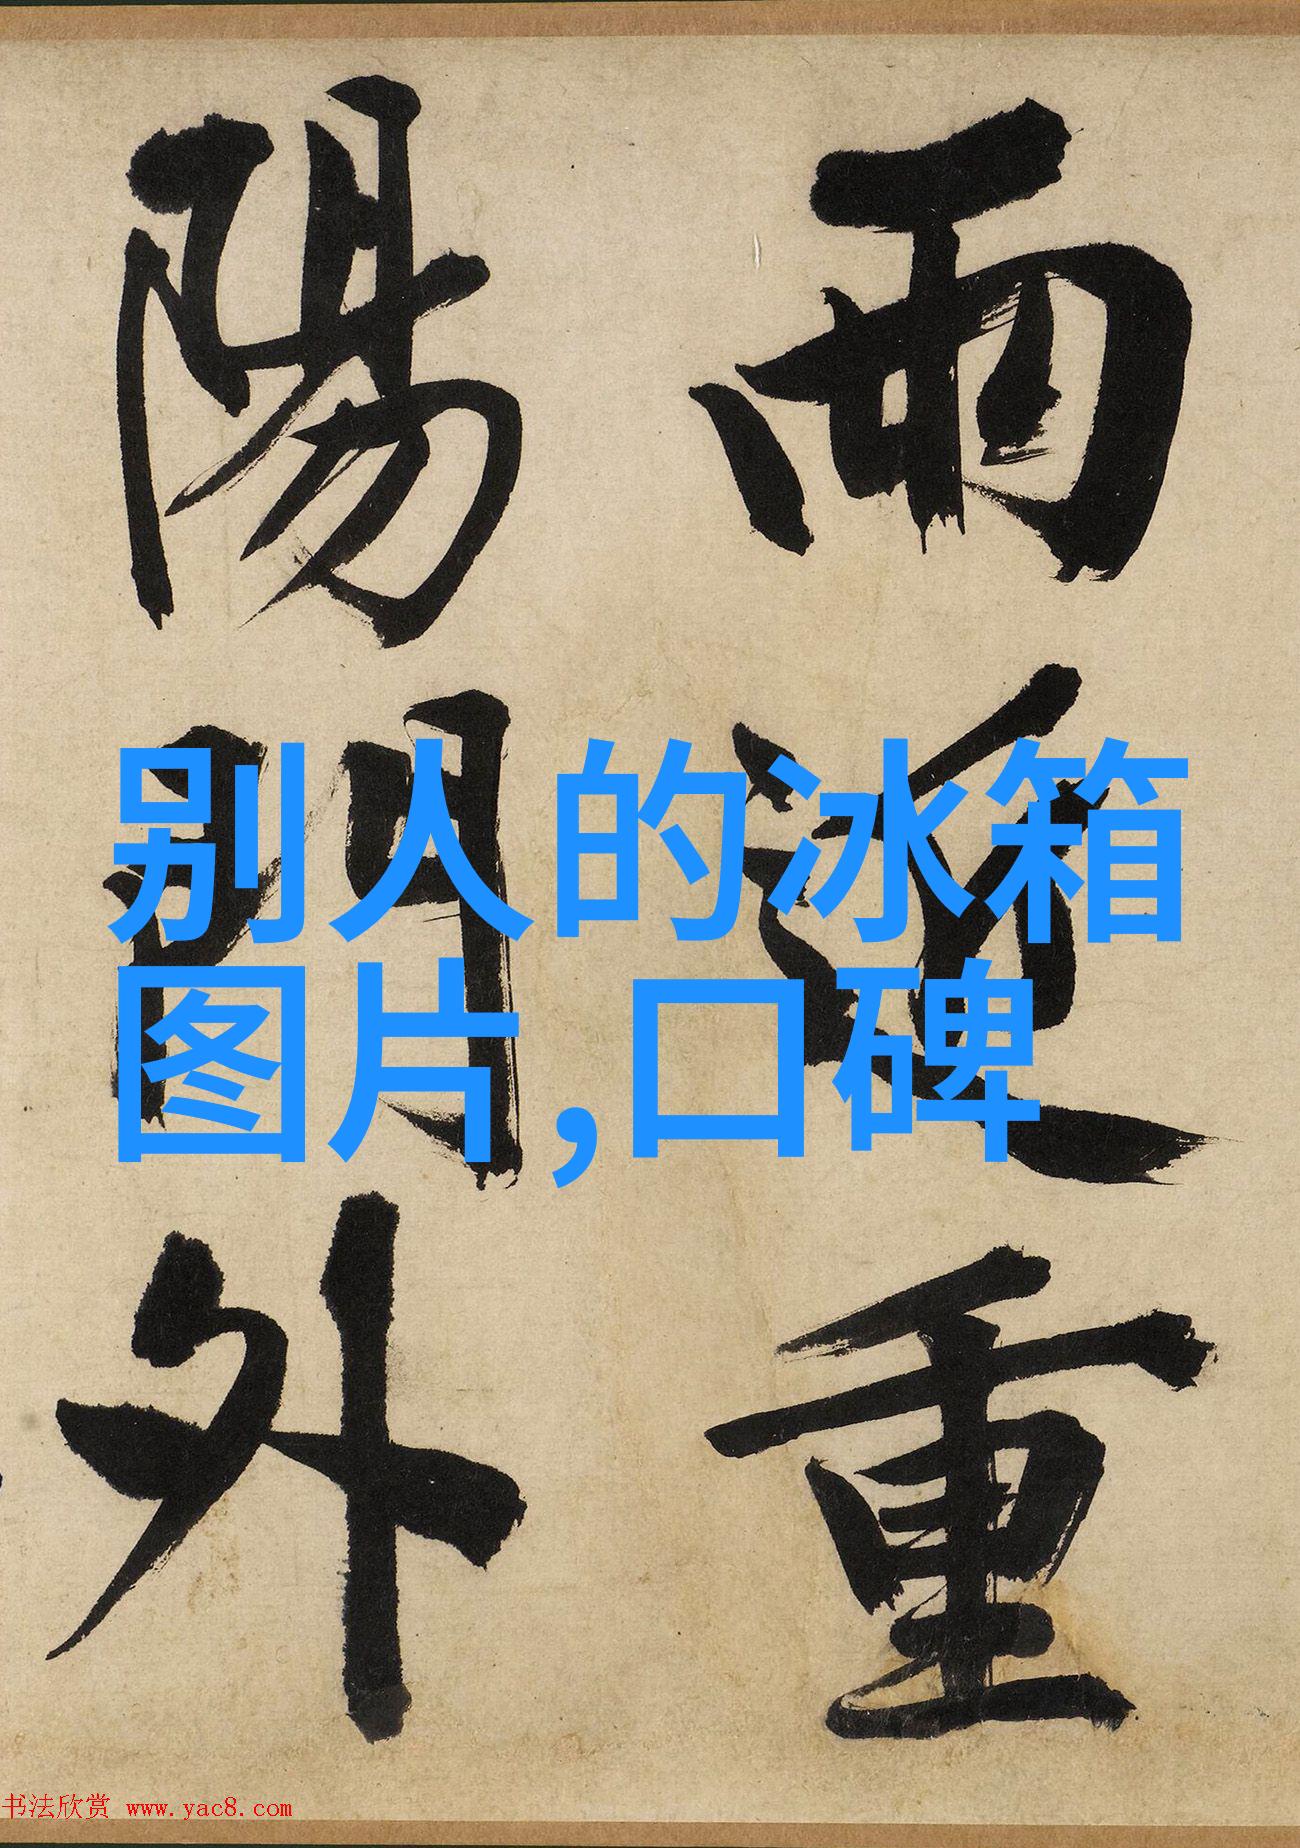 雨近重
陽門外
别人的冰箱
图片,口碑
书法欣赏 www.yac8.com